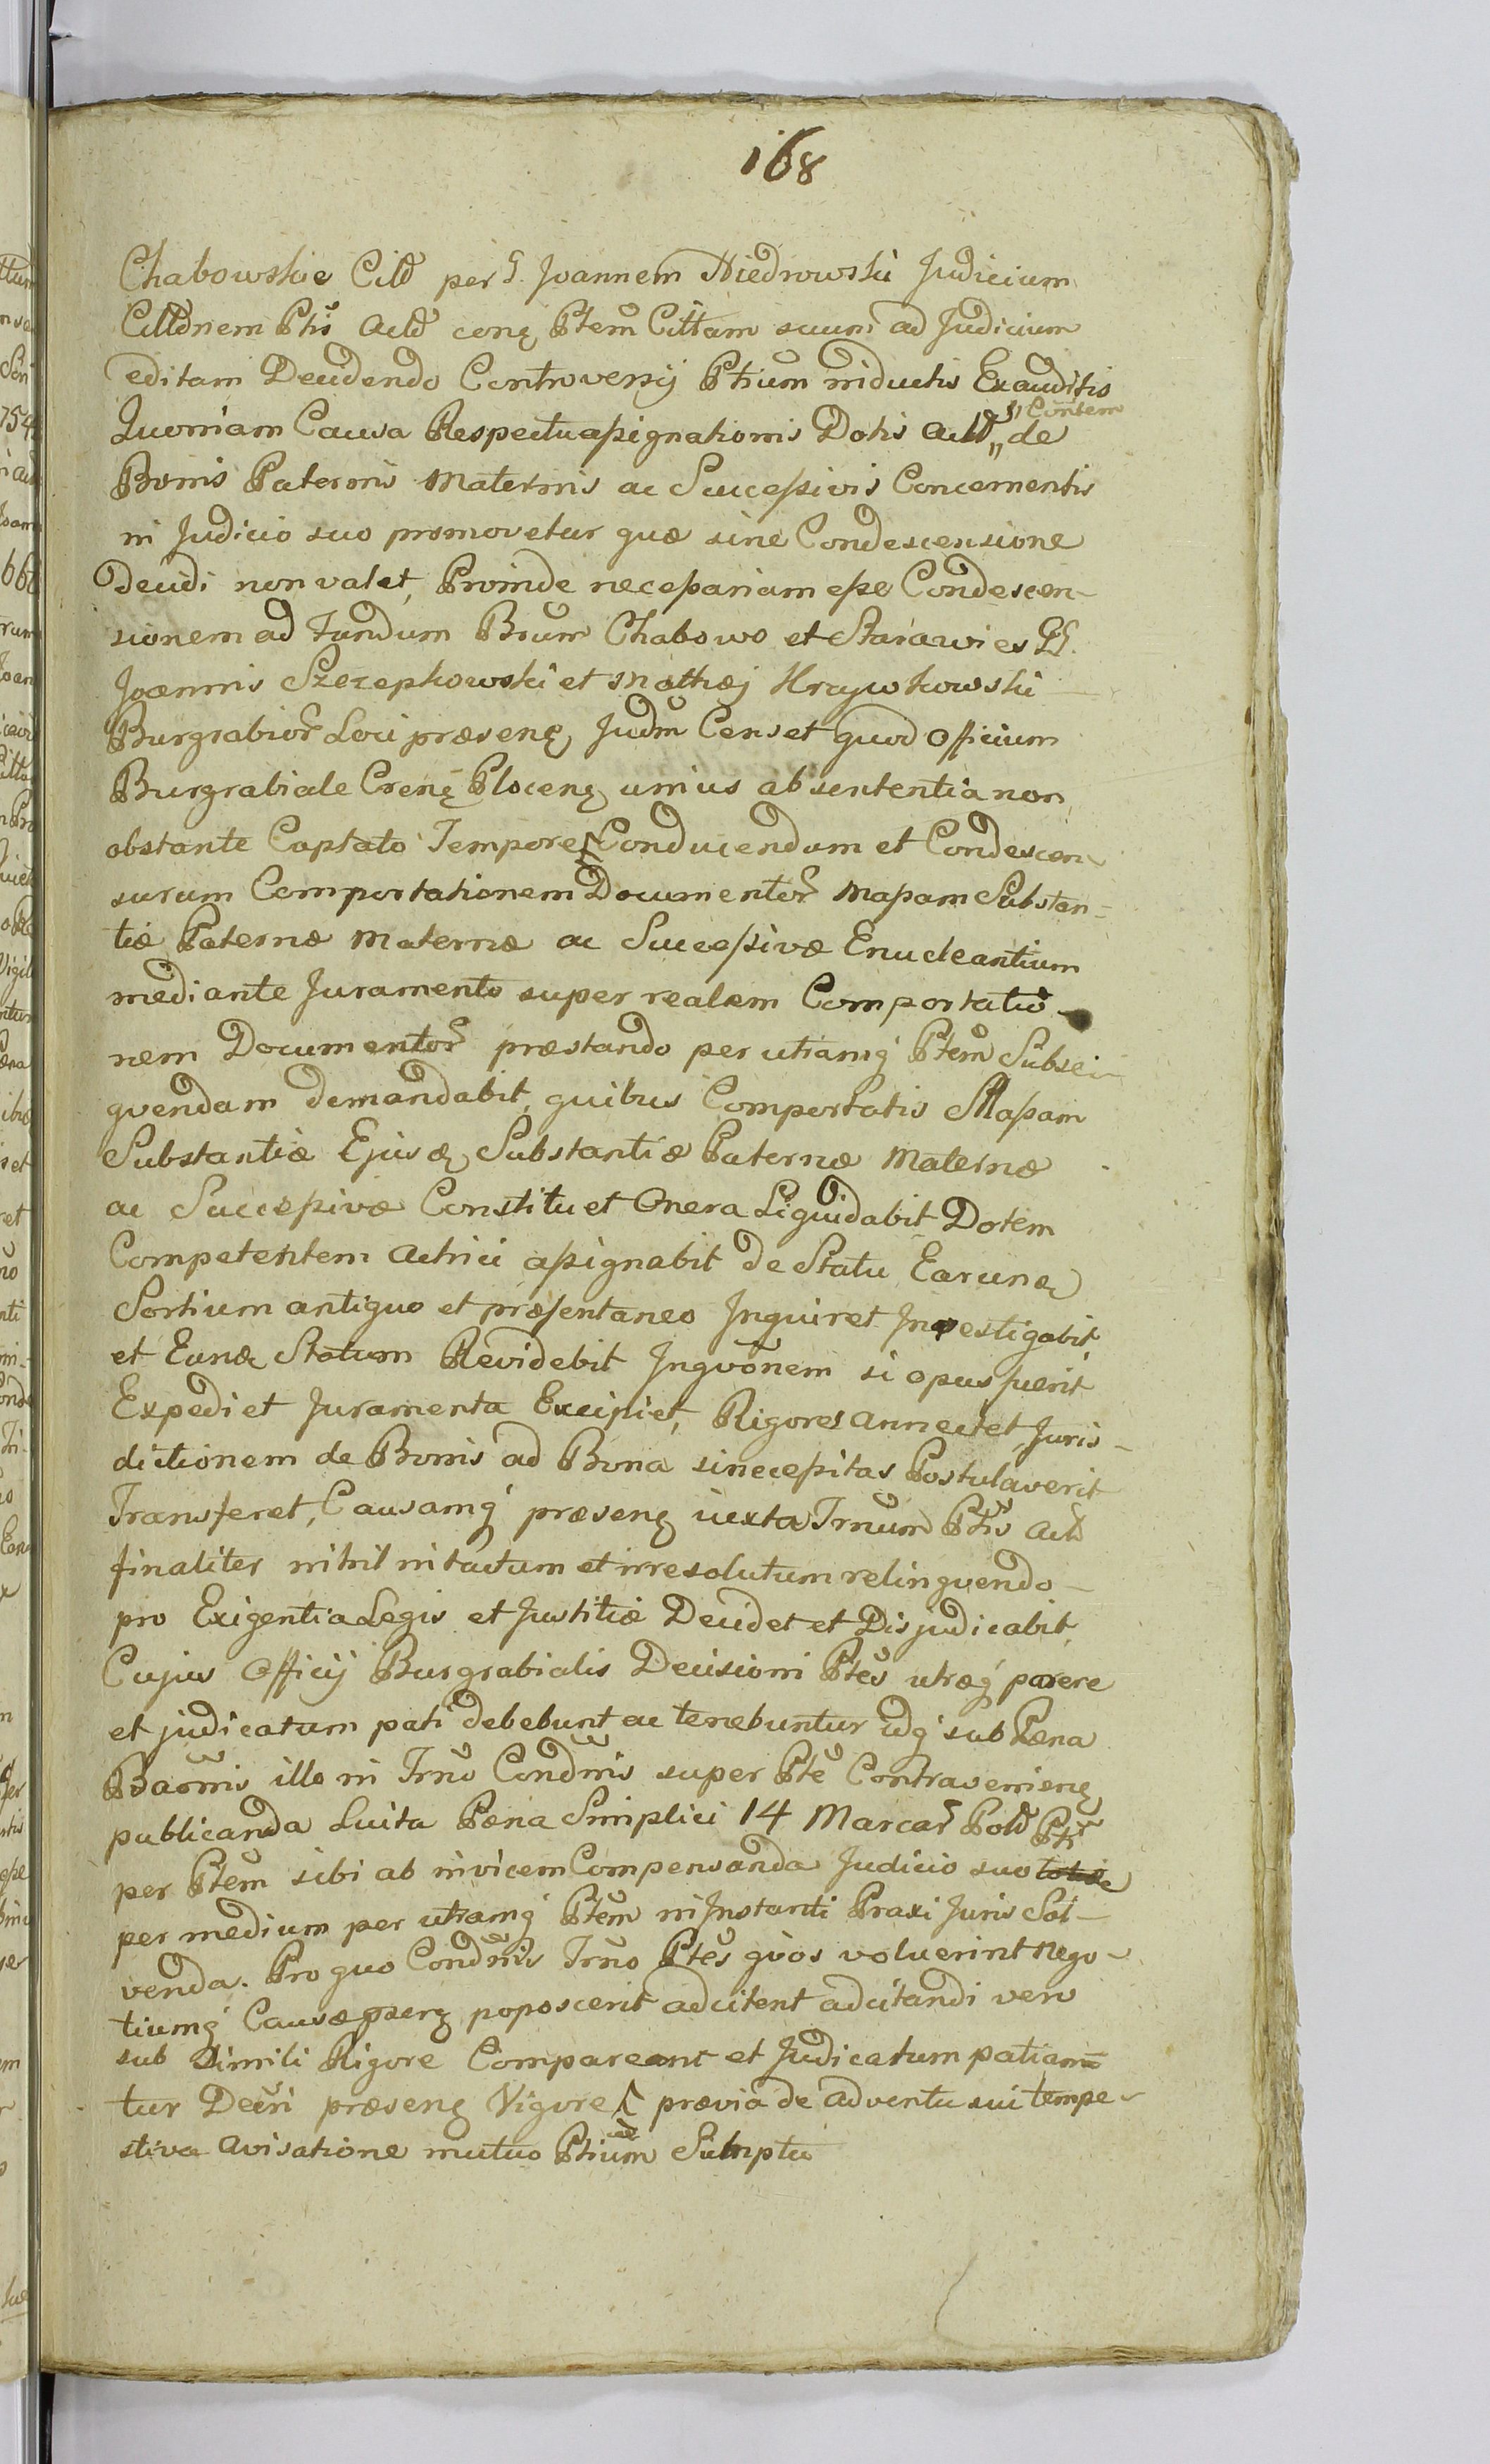 168
Chabowskie Citt per G. Joannem Niedrowski Judicium
Cittõnem Ptis Actt conę Ptem Cittam suum ad Judicium
editam Decidendo Controversij Ptium inductis Exauditis
Quoniam Causa Respectu assignationis Dotis Actt „ de
„ Conũem
Bonis Paternis Maternis ac Successivis Concernentis
in Judicio suo promovetur quæ sine Condescensione
Decidi non valet, Proinde necessariam esse Condescen-
sionem ad Fundum Bnum Chabowo et Starawies GG.
Joannis Szczepkowski et Mathæj Krzywkowski
Burgrabior Loci præsenę, Judm Censet quod Officium
Burgrabiale Crenę Plocenę unius absententia non
obstante Captato Tempore Conducendum et Condescen
surum Comportationem Documentor Massam Substan-
tiæ Paternæ Maternæ ac Successivæ Enucleantium
mediante Juramento super realem Comportatio-
nem Documentor præstando per utramq Ptem Subse-
quendam demandabit, quibus Comportatis Massam
Substantiæ Ejusdę Substantiæ Paternæ Maternæ
ac Successivæ Constituet Onera Liquidabit Dotem
Competentem Actrici assignabit de Statu Earundę
Sortium antiquo et præsentaneo Inquiret Investigabit,
et Eundę Statum Revidebit Inquõnem si opus fuerit
Expediet Juramenta Excipiet, Rigores annectet, Juris-
dictionem de Bonis ad Bona si necessitas Postulaverit
Transferet, Causamq præsenę iuxta Trnum Ptis Actt
finaliter nihil intactum et irresolutum relinquendo
pro Exigentia Legis et Justitiæ Decidet et Disjudicabit,
Cujus Officij Burgrabialis Decisioni Ptes utræq parere
et judicatum pati debebunt ac tenebuntur idq sub Pæna
Baõnis illo in Trno Condnis super Pte Contravenienę
publicanda Luita Pæna Simplici 14 Marcar Poll Pti
per Ptem sibi ab invicem Compensanda Judicio suo
per medium per utramq Ptem in Instanti Praxi Juris Sol-
venda. Pro quo Condnis Trno Ptes quos voluerint nego-
tiumq Causæ præsenę poposcerit adcitent adcitandi vero
sub Simili Rigore Compareant et Judicatum patian
tur Decri præsenę Vigore prævia de adventu sui tempe-
stiva avisatione mutuo Ptium Sumptu